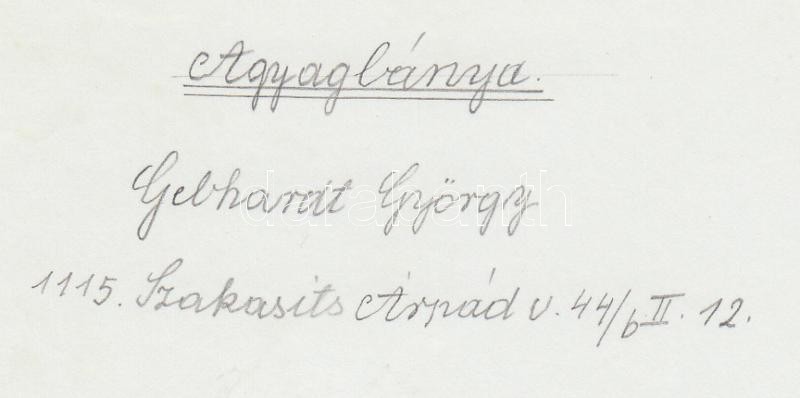 Agyagbánya.
Gebhardt György
1115. Szakasits Árpád u. 44/b II. 12.